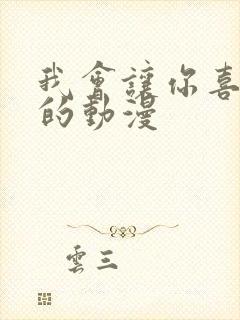 我會讓你喜
的動漫
雲三